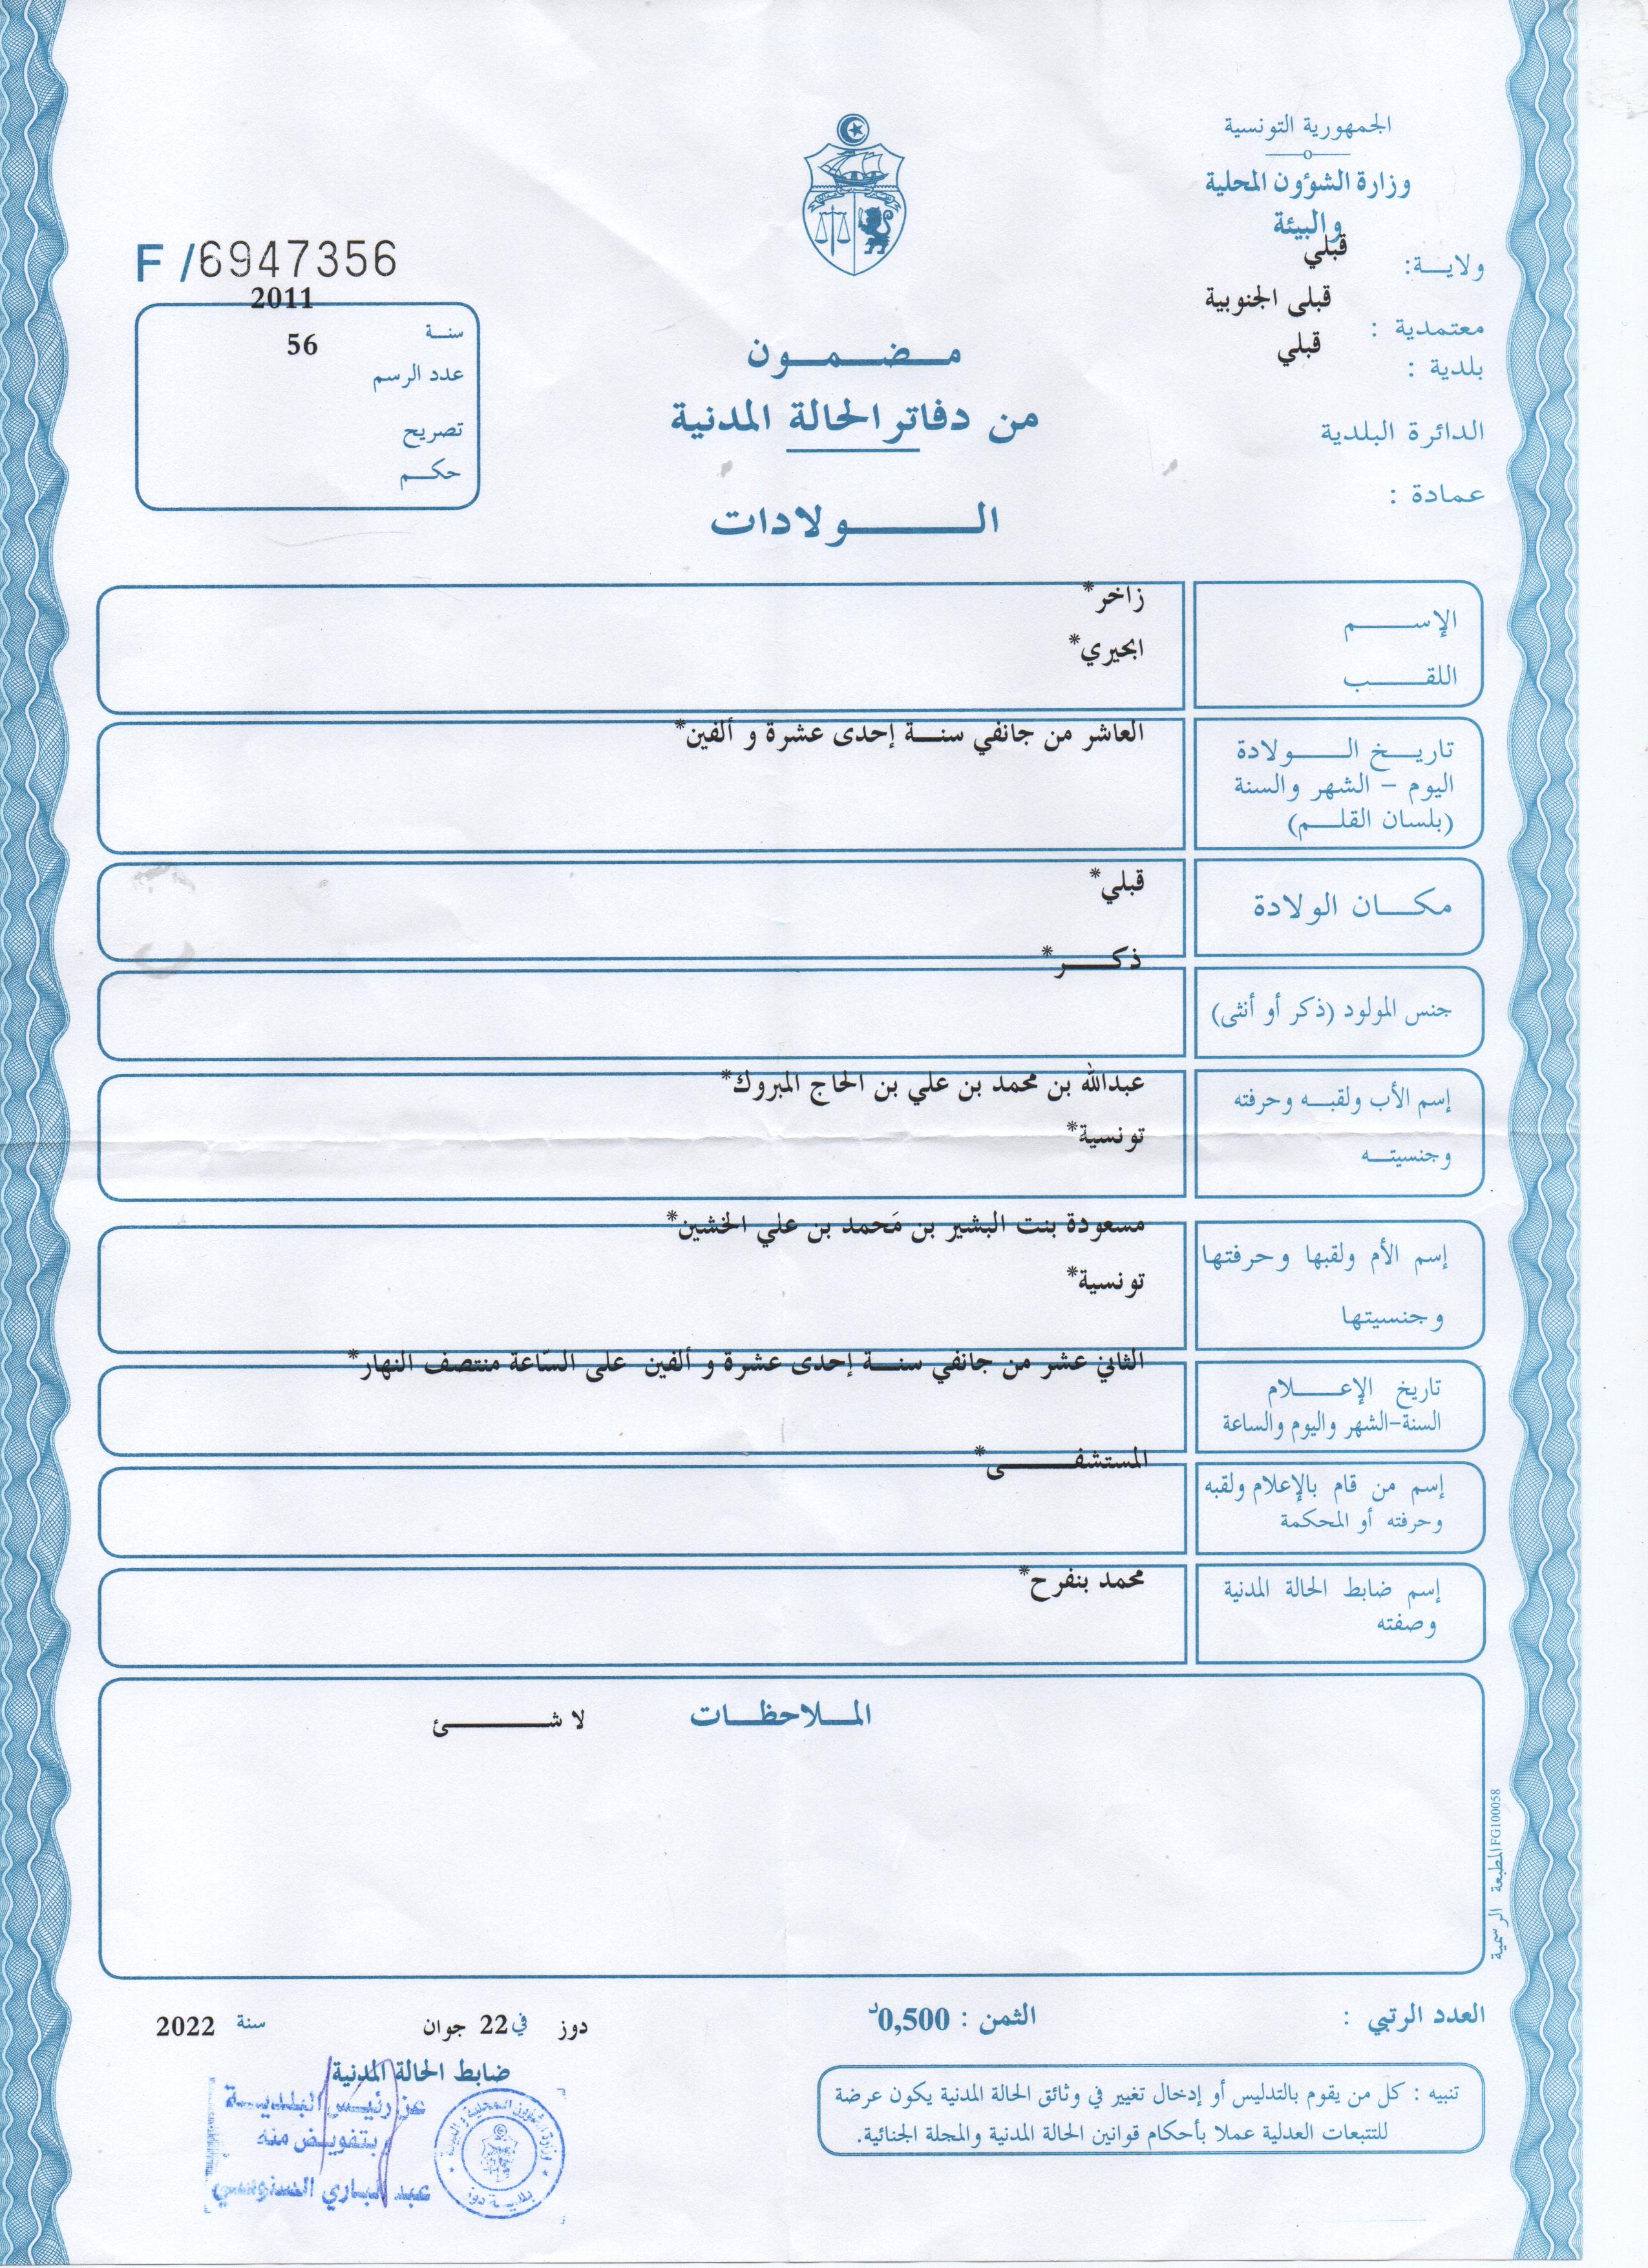 الجمهورية التونسية
وزارة الشؤون المحلية
والبيئة
ولاية: قبلي
معتمدية : قبلى الجنوبية
بلدية : قبلي
الدائرة البلدية
عمادة :
F /6947356
سنة 2011
عدد الرسم 56
تصريح
حكم
مضمون
من دفاتر الحالة المدنية
الولادات
الإسم
زاخر*
اللقب
ابحيري*
تاريخ الولادة
اليوم - الشهر والسنة
(بلسان القلم)
العاشر من جانفي سنة إحدى عشرة و ألفين*
مكان الولادة
قبلي*
جنس المولود (ذكر أو أنثى)
ذكر*
إسم الأب ولقبه وحرفته
وجنسيته
عبدالله بن محمد بن علي بن الحاج المبروك*
تونسية*
إسم الأم ولقبها وحرفتها
وجنسيتها
مسعودة بنت البشير بن مَحمد بن علي الخشين*
تونسية*
تاريخ الإعلام
السنة-الشهر واليوم والساعة
الثاني عشر من جانفي سنة إحدى عشرة و ألفين على السّاعة منتصف النهار*
إسم من قام بالإعلام ولقبه
وحرفته أو المحكمة
المستشفى*
إسم ضابط الحالة المدنية
وصفته
محمد بنفرح*
الملاحظات
لا شئ
المطبعة الرسمية FG100058
العدد الرتبي :
الثمن : 0,500د
دوز في 22 جوان سنة 2022
ضابط الحالة المدنية
عن رئيس البلدية
وبتفويض منه
عبد الباري السنوسي
وزارة الشؤون المحلية والبيئة
بلدية دوز
تنبيه : كل من يقوم بالتدليس أو إدخال تغيير في وثائق الحالة المدنية يكون عرضة
للتتبعات العدلية عملا بأحكام قوانين الحالة المدنية والمجلة الجنائية.